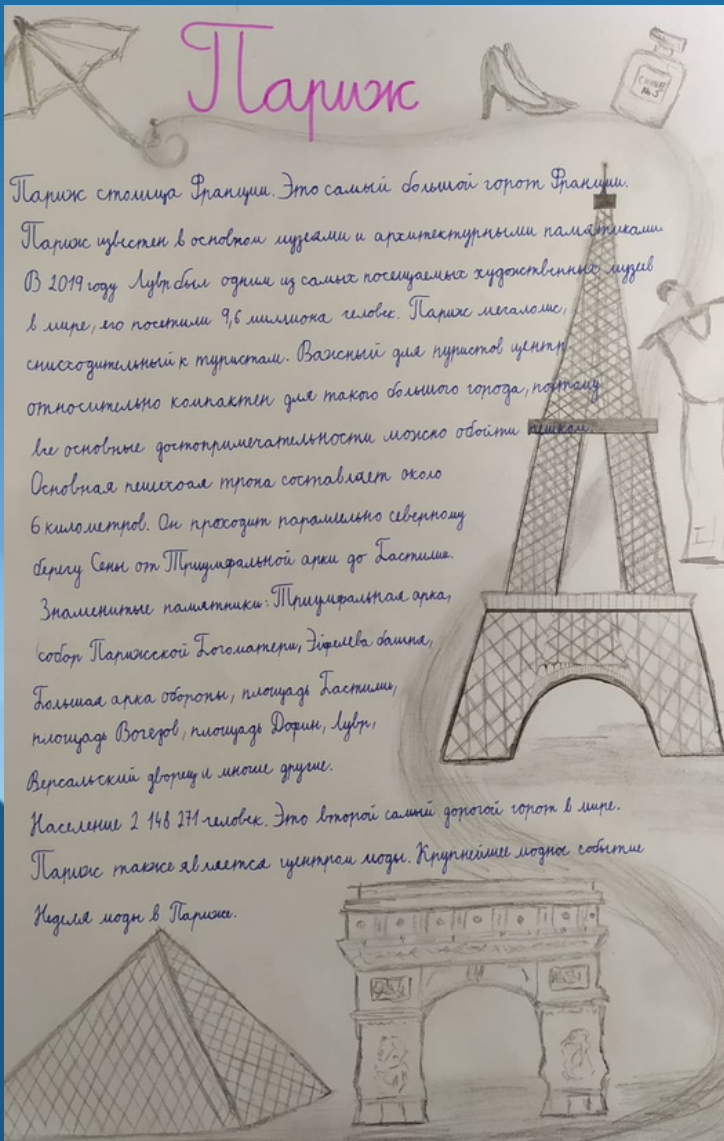 Париж
CHANEL
№5
Париж столица Франции. Это самый большой горот Франции.
Париж известен в основном музеями и архитектурными памятиками.
В 2019 году Лувр был одним из самых посещаемых художственных музеев
в мире, его посетили 9,6 миллиона человек. Париж мегалопис,
снисходительный к туристам. Важный для туристов центр
относительно компактен для такого большого города, поэтому
все основные достопримечательности можно обойти пешком.
Основная пешехоая тропа составляет около
6 километров. Он проходит параллельно северному
берегу Сены от Триумфальной арки до Бастилии.
Знаменитые памятники: Триумфальная арка,
собор Парижской Богоматери, Эйфелева башня,
Большая арка обороны, площадь Бастилии,
площадь Вогезов, площадь Дофин, Лувр,
Версальский дворец и многие другие.
Население 2 148 271 человек. Это второй самый дорогой горот в мире.
Париж также является центром моды. Крупнейшее модное событие
Неделя моды в Париже.